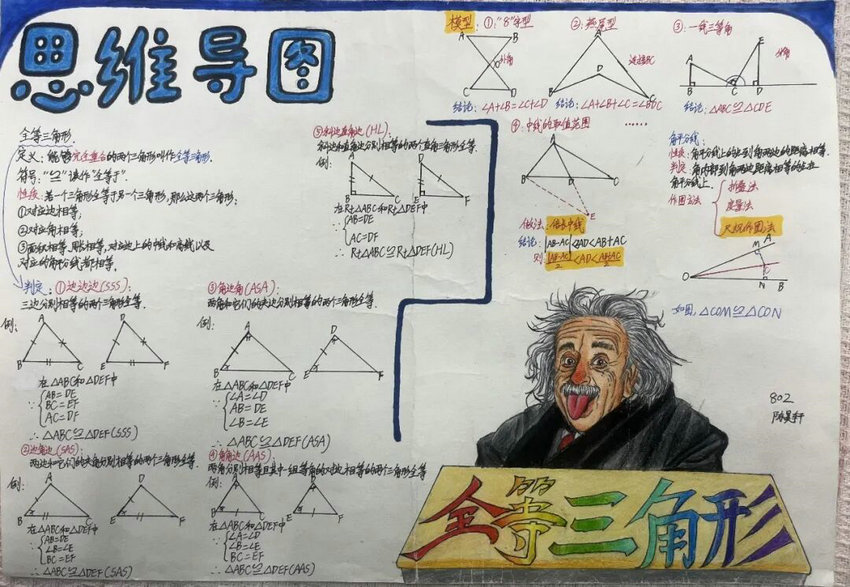 思维导图
全等三角形.
定义: 能够完全重合的两个三角形叫作全等三角形.
符号: "≌"读作"全等于".
性质: 若一个三角形全等于另一个三角形, 那么这两个三角形:
①对应边相等,
②对应角相等,
③面积相等、周长相等, 对应边上的中线和高线以及
对应的角平分线都相等.
判定: ①边边边(SSS):
三边分别相等的两个三角形全等.
例:
A
D
B
C
E
F
在△ABC和△DEF中
∵ AB=DE
BC=EF
AC=DF
∴△ABC≌△DEF(SSS)
②边角边(SAS):
两边和它们的夹角分别相等的两个三角形全等.
例:
A
D
B
C
E
F
在△ABC和△DEF中
∵ AB=DE
∠B=∠E
BC=EF
∴△ABC≌△DEF(SAS)
③角边角(ASA):
两角和它们的夹边分别相等的两个三角形全等.
例:
A
D
B
C
E
F
在△ABC和△DEF中
∵ ∠A=∠D
AB=DE
∠B=∠E
∴△ABC≌△DEF(ASA)
④角角边(AAS):
两角分别相等且其中一组等角的对边相等的两个三角形全等
例:
A
D
B
C
E
F
在△ABC和△DEF中
∵ ∠A=∠D
∠B=∠E
BC=EF
∴△ABC≌△DEF(AAS)
⑤斜边直角边(HL):
斜边和直角边分别相等的两个直角三角形全等.
例:
A
D
B
C
E
F
在Rt△ABC和Rt△DEF中
∵ AB=DE
AC=DF
∴Rt△ABC≌Rt△DEF(HL)
模型: ①: "8"字型
A
B
外角
C
D
结论: ∠A+∠B=∠C+∠D
②: 燕尾型
A
D
B
C
结论: ∠A+∠B+∠C=∠BDC
③: 一线三等角
A
E
B
C
D
外角
结论: △ABC≌△CDE
④: 中线的取值范围
……
A
B
D
C
E
做法: 倍长中线
结论: |AB-AC|<2AD<AB+AC
则 |AB-AC|/2<AD<AB+AC/2
角平分线:
性质: 角平分线上的点到角两边的距离相等.
判定: 角内部到角两边距离相等的点在
角平分线上.
作图方法
折叠法
度量法
尺规作图法
A
M
C
O
N
B
如图, △COM≌△CON
802
全等三角形